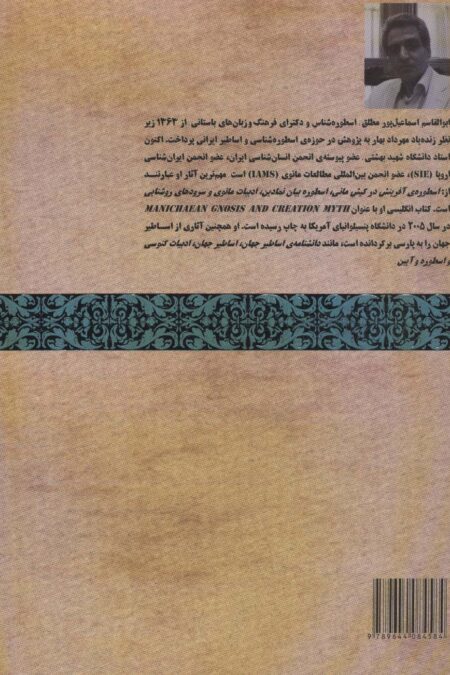 ابوالقاسم اسماعیل‌پور مطلق. اسطوره‌شناس و دکترای فرهنگ و زبان‌های باستانی. از ۱۳۶۳ زیر
نظر زنده‌یاد مهرداد بهار به پژوهش در حوزه‌ی اسطوره‌شناسی و اساطیر ایرانی پرداخت. اکنون
استاد دانشگاه شهید بهشتی. عضو پیوسته‌ی انجمن انسان‌شناسی ایران، عضو انجمن ایران‌شناسی
اروپا (SIE)، عضو انجمن بین‌المللی مطالعات مانوی (IAMS) است. مهم‌ترین آثار او عبارتند
از: اسطوره‌ی آفرینش در کیش مانی، اسطوره بیان نمادین، ادبیات مانوی و سرودهای روشنایی
است. کتاب انگلیسی او با عنوان MANICHAEAN GNOSIS AND CREATION MYTH
در سال ۲۰۰۵ در دانشگاه پنسیلوانیای آمریکا به چاپ رسیده است. او همچنین آثاری از اساطیر
جهان را به پارسی برگردانده است، مانند دانشنامه‌ی اساطیر جهان، اساطیر جهان، ادبیات گنوسی
و اسطوره و آیین
9 789644 084584